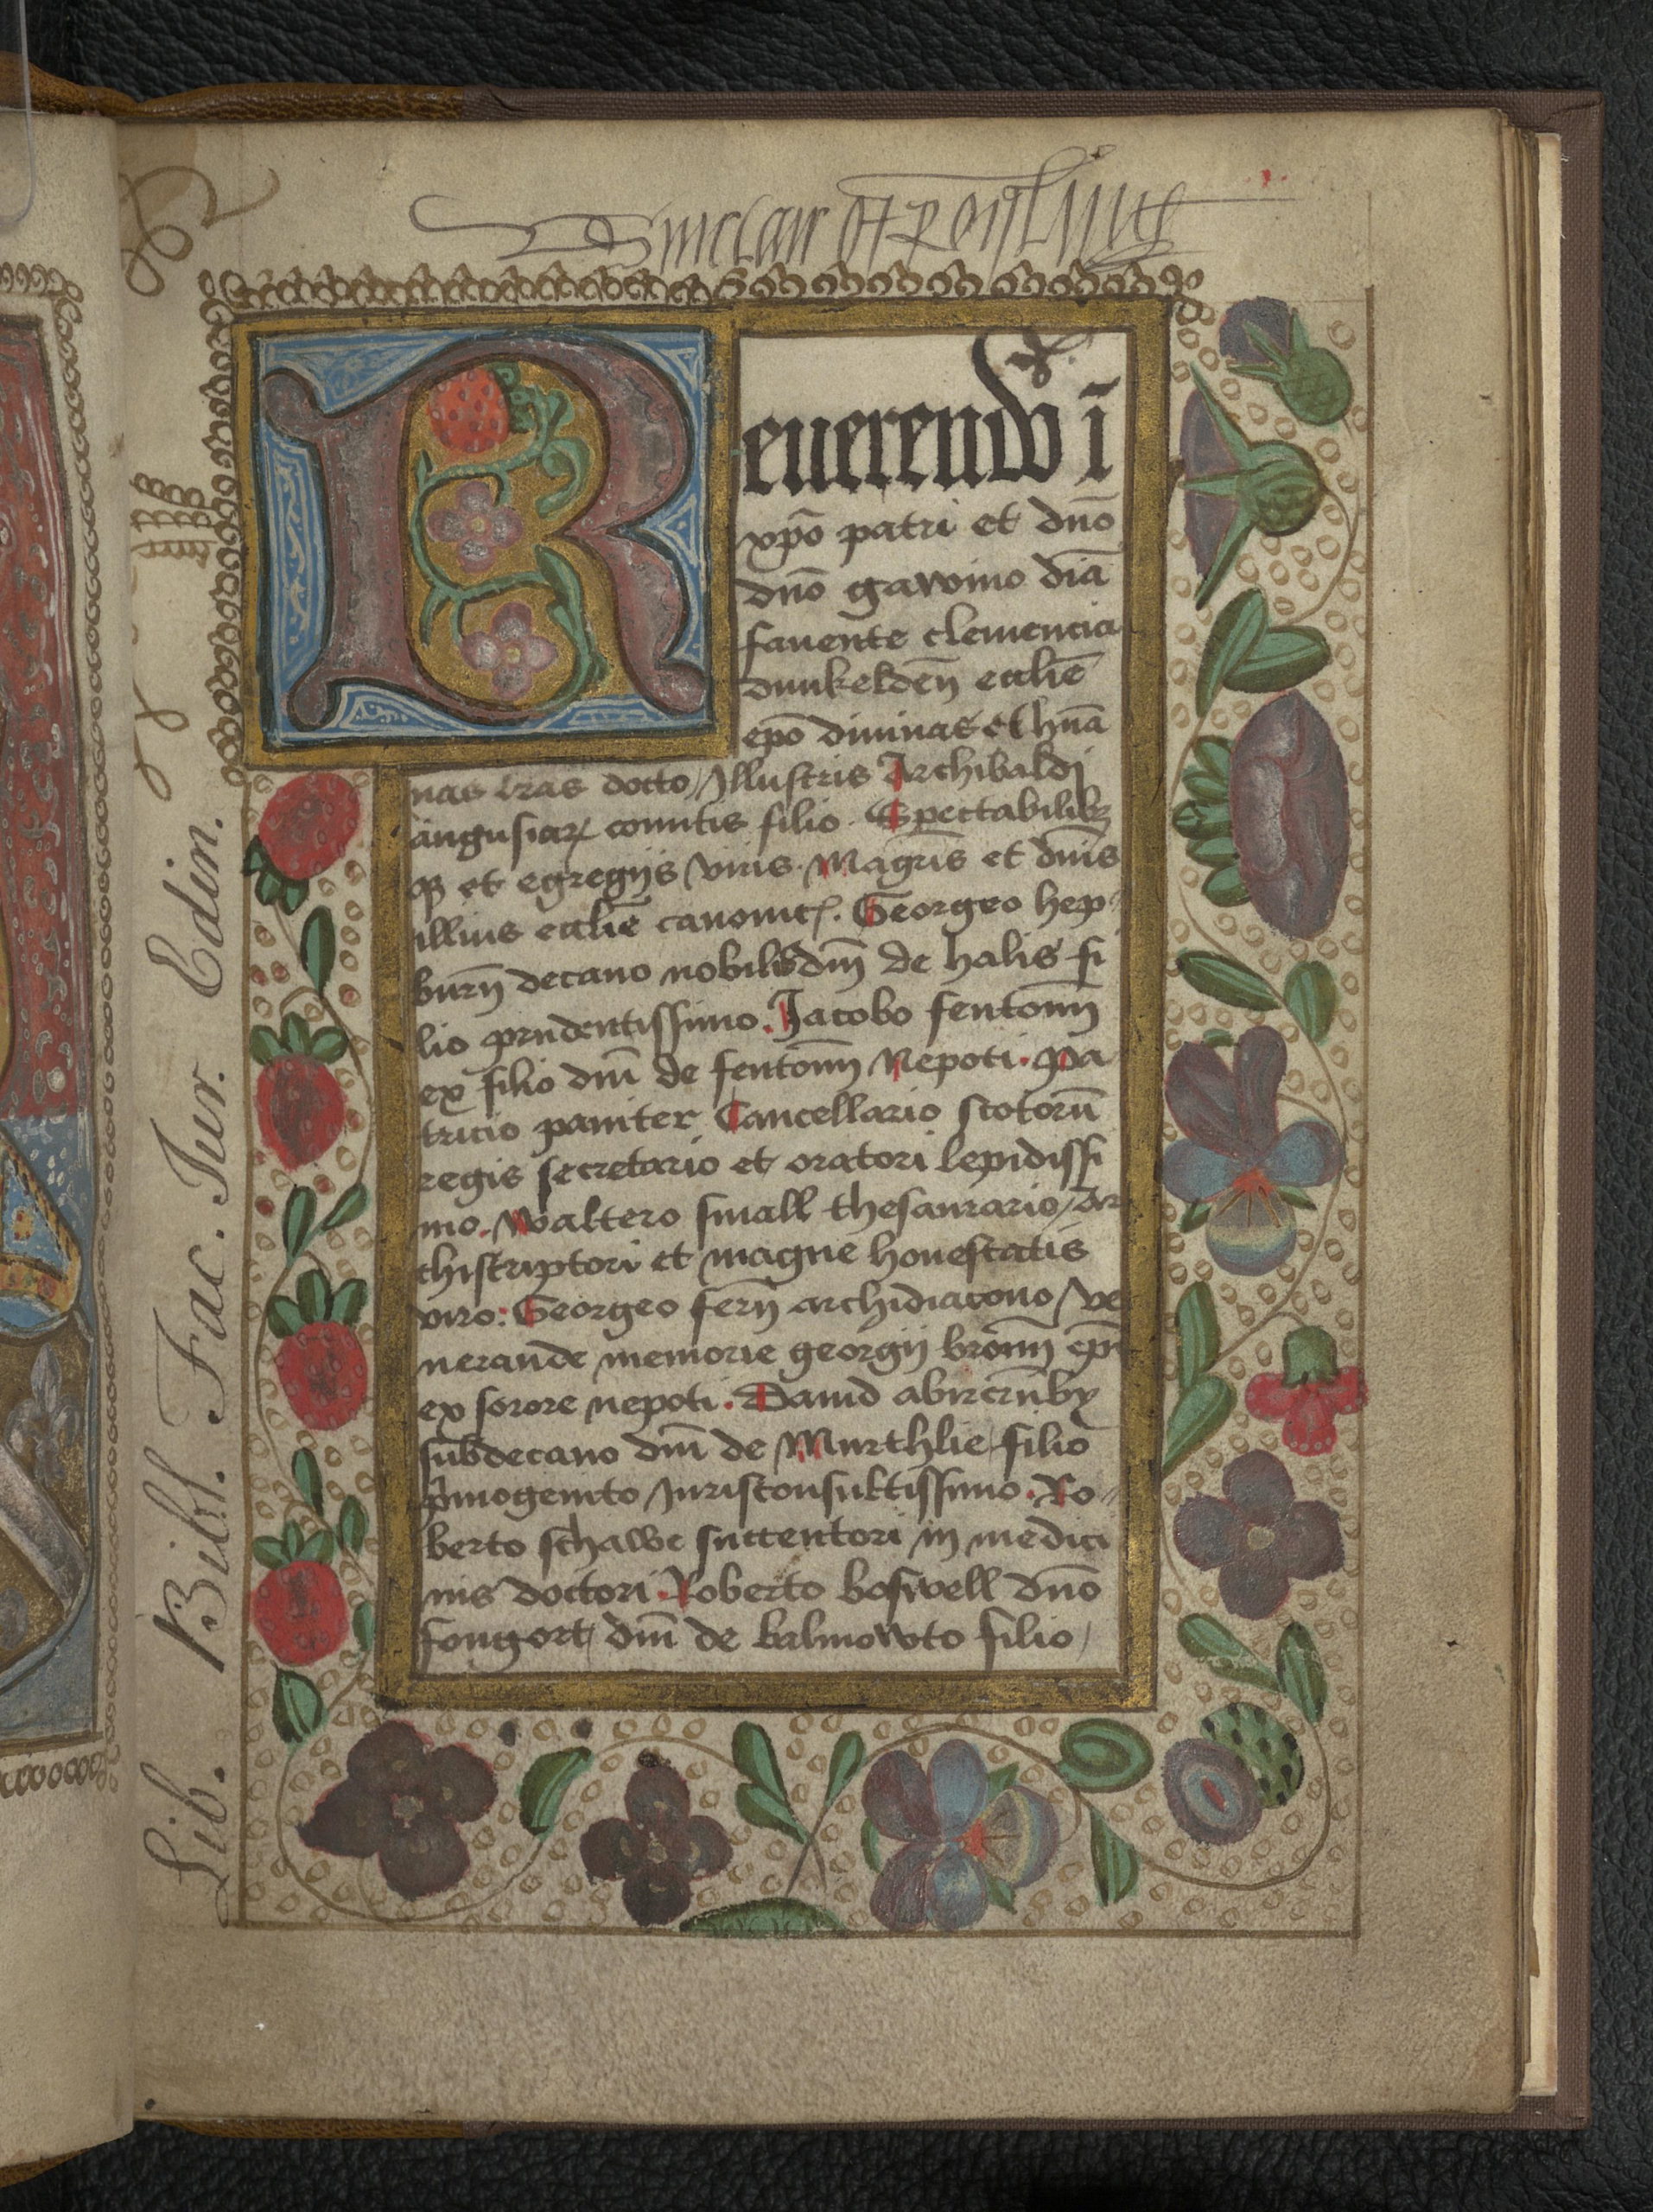 Sinclair of Roislinge
Reuerendo ī
xp̄o patri et dn̄o
dn̄o gawino diā
fauente clemencia
dunkelden̄ ecclīe
ep̄o diuinas et hūa
nas lr̄as docto / Illustris Archibaldj
angusiaꝝ comitis filio. Spectabilibꝫ
qꝫ et egregijs viris. Magr̄is et dn̄is
illius ecclīe canonicꝭ. Georgeo hep
burn̄ decano nobilis dn̄i de halis fi
lio prudentissimo. Jacobo fentoun̄
ex filio dn̄i de fentoun̄ Nepoti. Pa
tricio paniter Cancellario scotorū
regis secretario et oratori lepidissi
mo. Waltero small thesaurario / Ar
chiscriptori et magne honestatis
viro: Georgeo fern̄ archidiacono / ve
nerande memorie georgij broun̄ ep̄i
ex sorore nepoti. Dauid abircrūby
subdecano dn̄i de Murthlie filio
p̄mogenito Jurisconsultissimo. Ro
berto schawe succentori in medici
nis doctori. Roberto boswell dn̄o
fongort / dn̄i de balmowto filio /
Lib. Bibl. Fac. Jur. Edin.